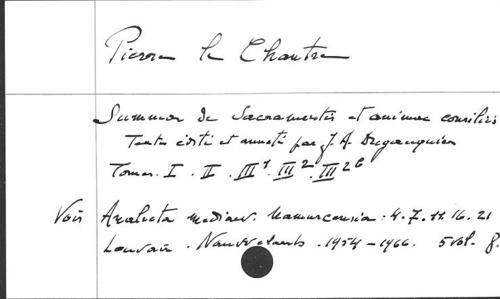 Pierre le Chantre
Summa de Sacramentis et animae consiliis
Texte édité et annoté par J. A. Dugauquier
Tomes. I. II. III 1. III 2. III 2 b
Voir Analecta mediaev. Namurcensia. 4. 7. 11 16. 21
Louvain. Nauwelaerts. 1954-1966. 5 vol. 8.